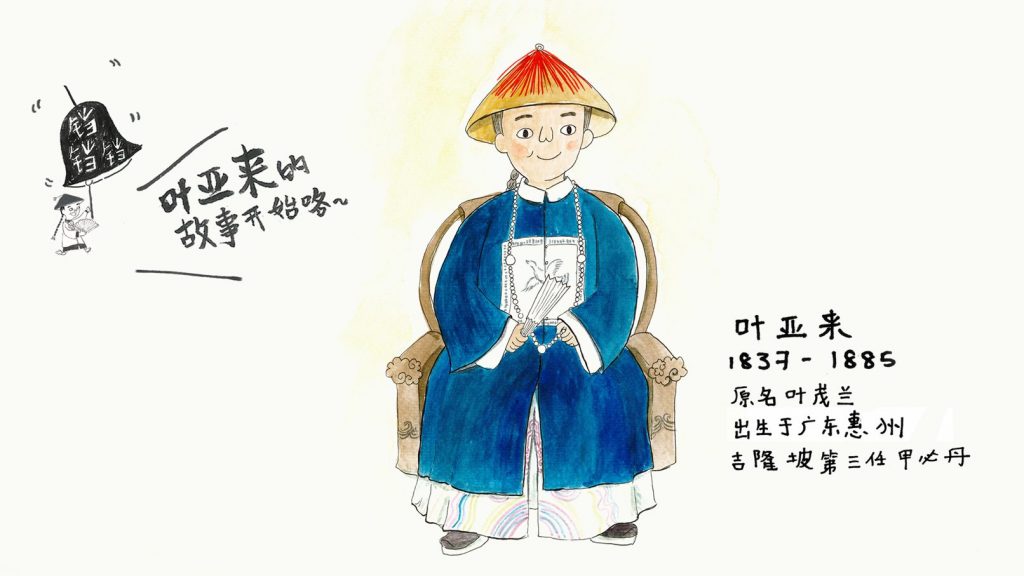 铛
铛铛
叶亚来的
故事开始咯~
叶亚来
1837-1885
原名叶茂兰
出生于广东惠州
吉隆坡第三任甲必丹